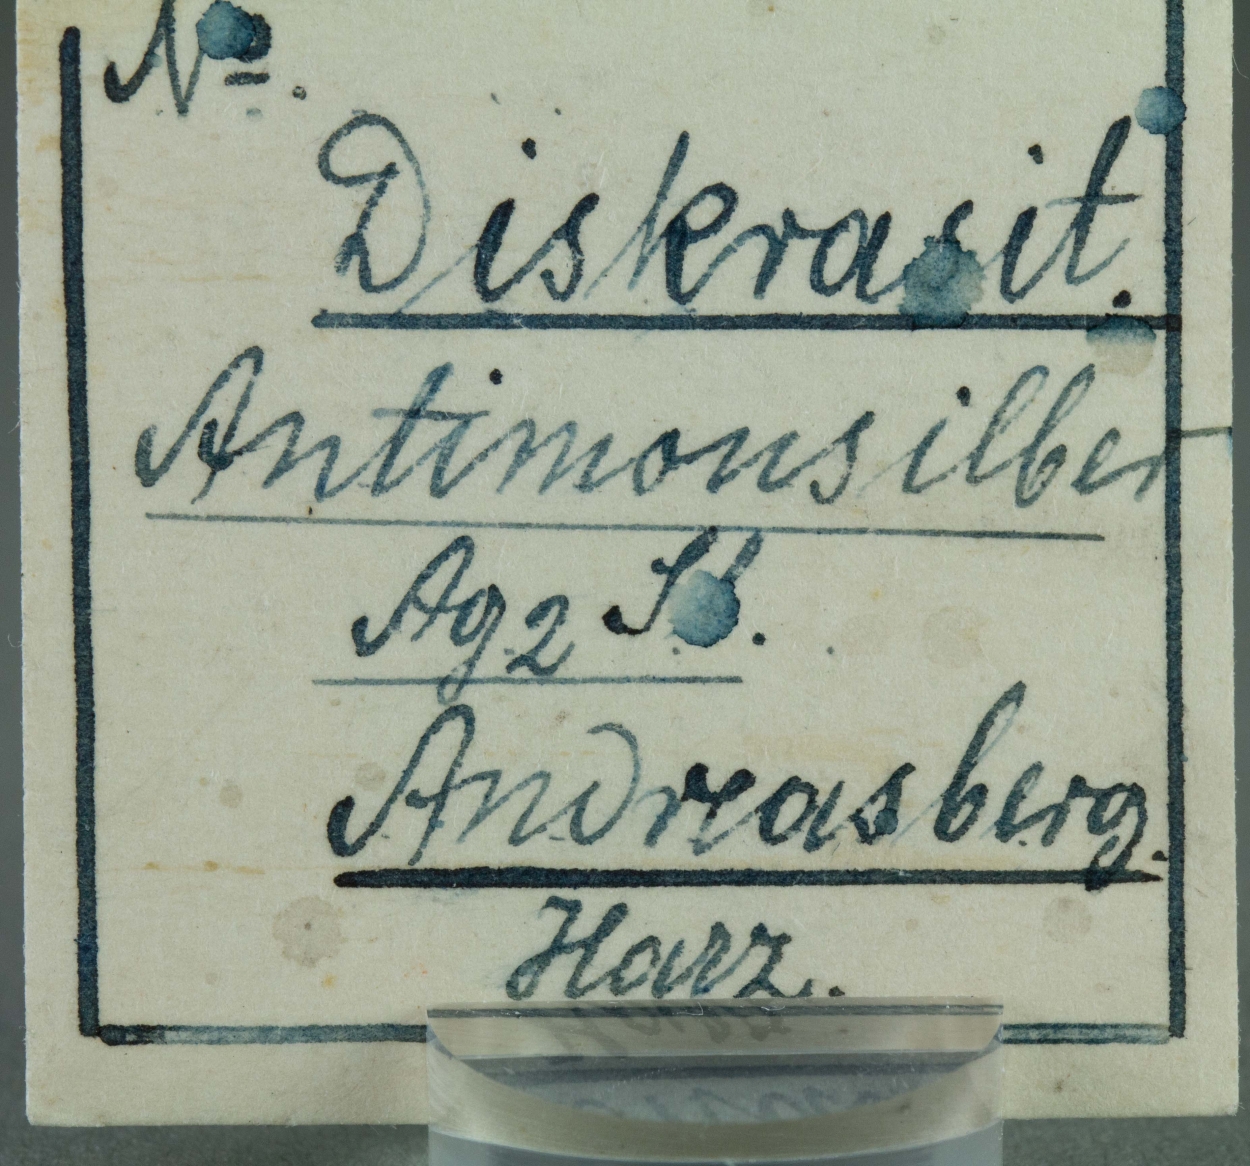 No.
Diskrasit.
Antimonsilber
Ag2 Sb.
Andreasberg.
Harz.